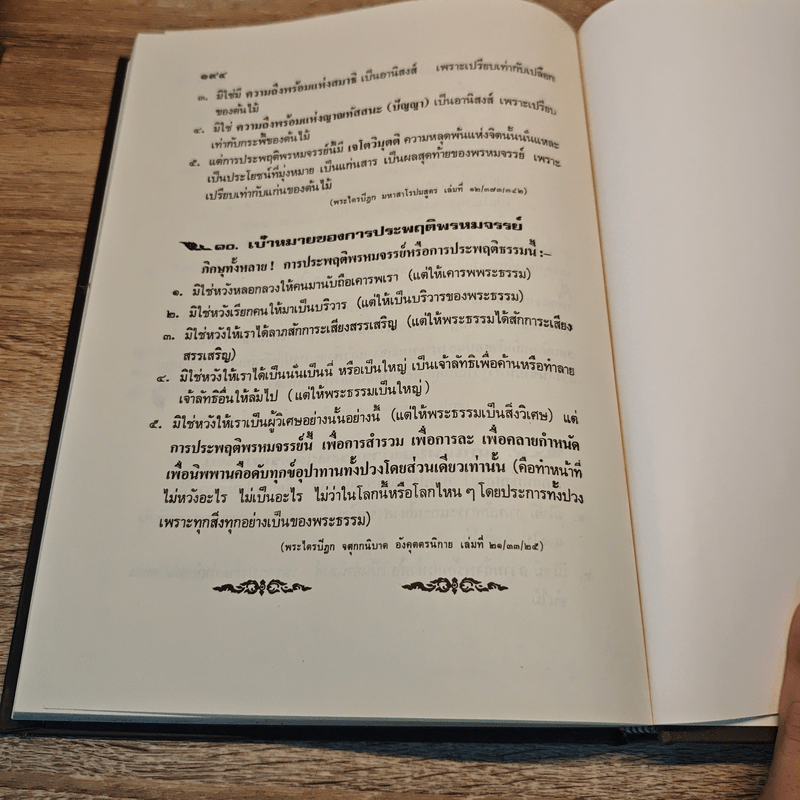 ๑๙๔
๓. มิใช่มี ความถึงพร้อมแห่งสมาธิ เป็นอานิสงส์ เพราะเปรียบเท่ากับเปลือก
ของต้นไม้
๔. มิใช่ ความถึงพร้อมแห่งญาณทัสสนะ (ปัญญา) เป็นอานิสงส์ เพราะเปรียบ
เท่ากับกระพี้ของต้นไม้
๕. แต่การประพฤติพรหมจรรย์นี้มี เจโตวิมุตติ ความหลุดพ้นแห่งจิตนั้นนั่นแหละ
เป็นประโยชน์ที่มุ่งหมาย เป็นแก่นสาร เป็นผลสุดท้ายของพรหมจรรย์ เพราะ
เปรียบเท่ากับแก่นของต้นไม้
(พระไตรปิฎก มหาสาโรปมสูตร เล่มที่ ๑๒/๓๗๓/๓๕๒)
๑๐. เป้าหมายของการประพฤติพรหมจรรย์
ภิกษุทั้งหลาย! การประพฤติพรหมจรรย์หรือการประพฤติธรรมนี้ :–
๑. มิใช่หวังหลอกลวงให้คนมานับถือเคารพเรา (แต่ให้เคารพพระธรรม)
๒. มิใช่หวังเรียกคนให้มาเป็นบริวาร (แต่ให้เป็นบริวารของพระธรรม)
๓. มิใช่หวังให้เราได้ลาภสักการะเสียงสรรเสริญ (แต่ให้พระธรรมได้สักการะเสียง
สรรเสริญ)
๔. มิใช่หวังให้เราได้เป็นนั่นเป็นนี่ หรือเป็นใหญ่ เป็นเจ้าลัทธิเพื่อค้านหรือทำลาย
เจ้าลัทธิอื่นให้ล้มไป (แต่ให้พระธรรมเป็นใหญ่)
๕. มิใช่หวังให้เราเป็นผู้วิเศษอย่างนั้นอย่างนี้ (แต่ให้พระธรรมเป็นสิ่งวิเศษ) แต่
การประพฤติพรหมจรรย์นี้ เพื่อการสำรวม เพื่อการละ เพื่อคลายกำหนัด
เพื่อนิพพานคือดับทุกข์อุปาทานทั้งปวงโดยส่วนเดียวเท่านั้น (คือทำหน้าที่
ไม่หวังอะไร ไม่เป็นอะไร ไม่ว่าในโลกนี้หรือโลกไหน ๆ โดยประการทั้งปวง
เพราะทุกสิ่งทุกอย่างเป็นของพระธรรม)
(พระไตรปิฎก จตุกกนิบาต อังคุตตรนิกาย เล่มที่ ๒๑/๓๓/๒๕)